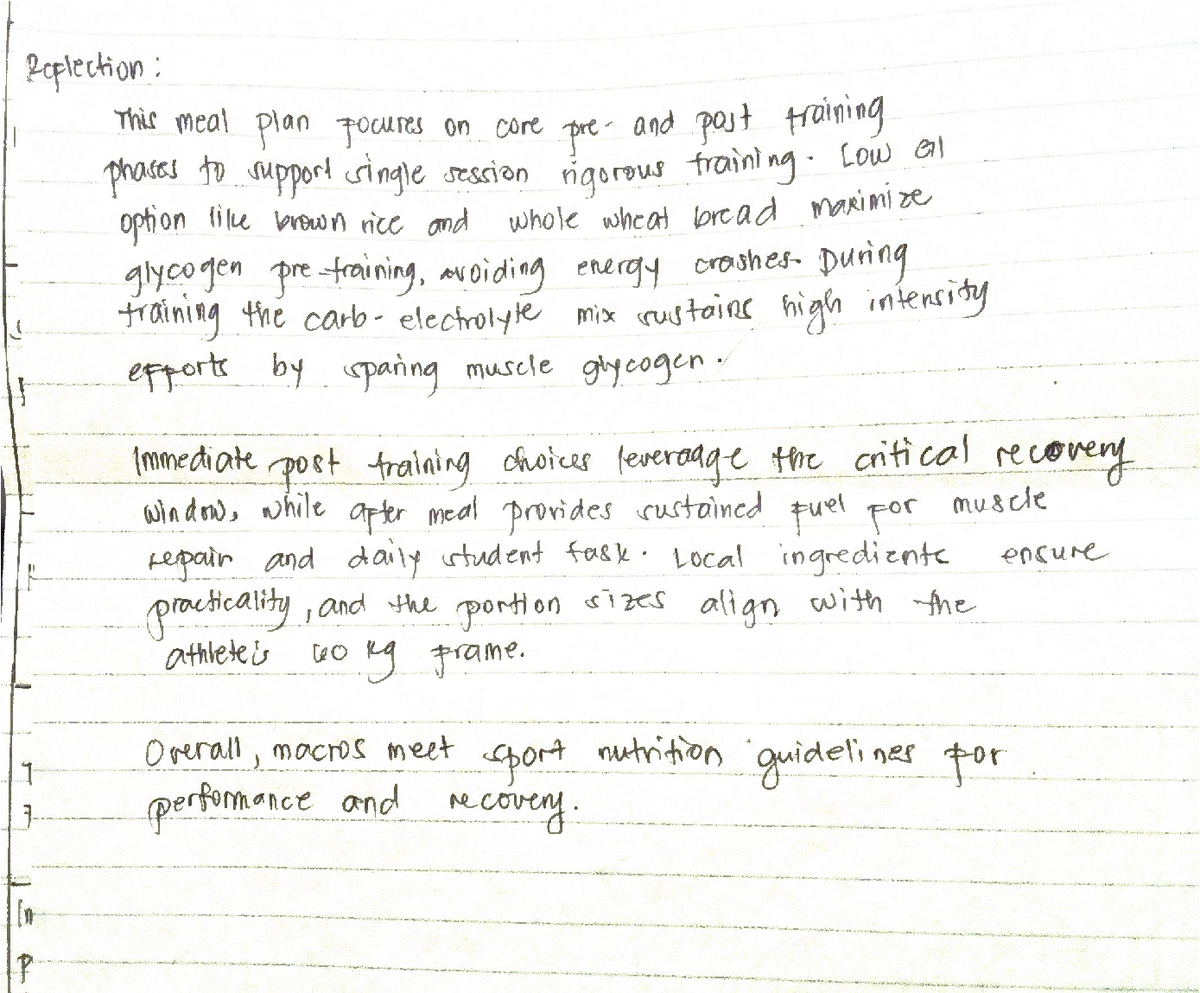 Reflection:
This meal plan focuses on core pre- and post training
phases to support single session rigorous training. Low GI
option like brown rice and whole wheat bread maximize
glycogen pre-training, avoiding energy crashes. During
training the carb-electrolyte mix sustains high intensity
efforts by sparing muscle glycogen.
Immediate post training choices leveradge the critical recovery
window, while after meal provides sustained fuel for muscle
repair and daily student task. Local ingredients ensure
practicality, and the portion sizes align with the
athlete's 60 kg frame.
Overall, macros meet sport nutrition guidelines for
performance and recovery.